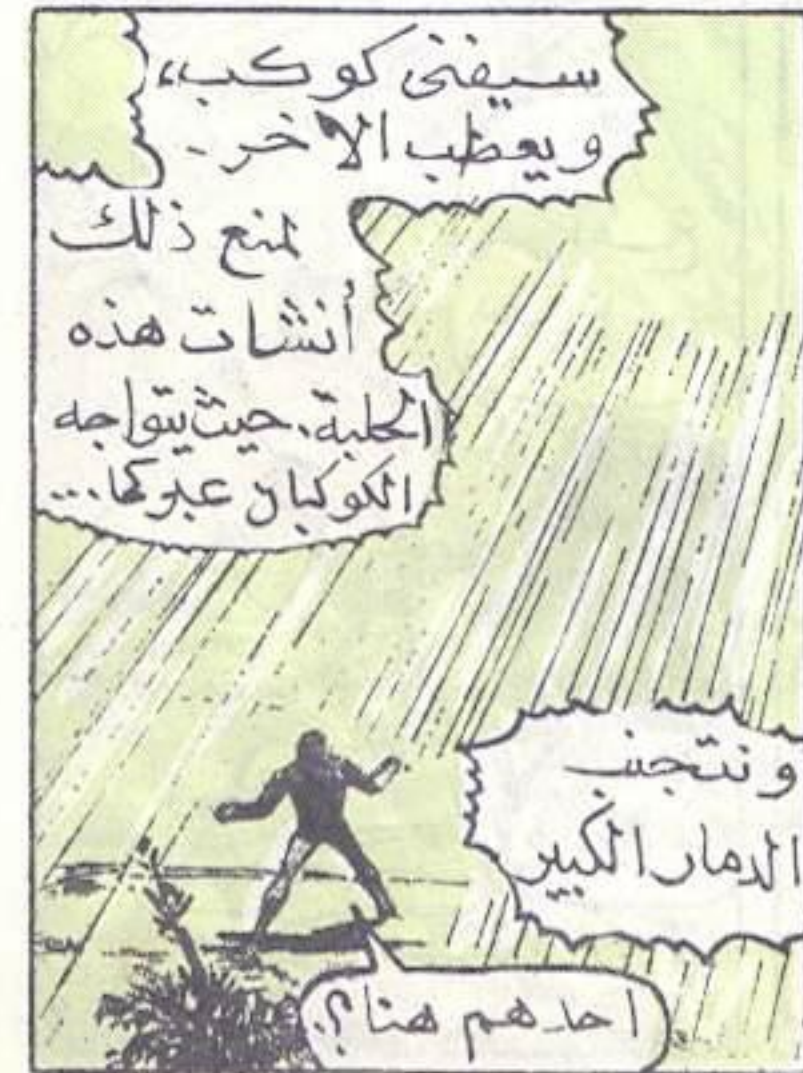 سيفنى كوكب،
ويعطب الاخر..
لمنع ذلك
أنشات هذه
الحلبة. حيث يتواجه
الكوكبان عبركما...
ونتجنب
الدمار الكبير
احدهم هنا؟